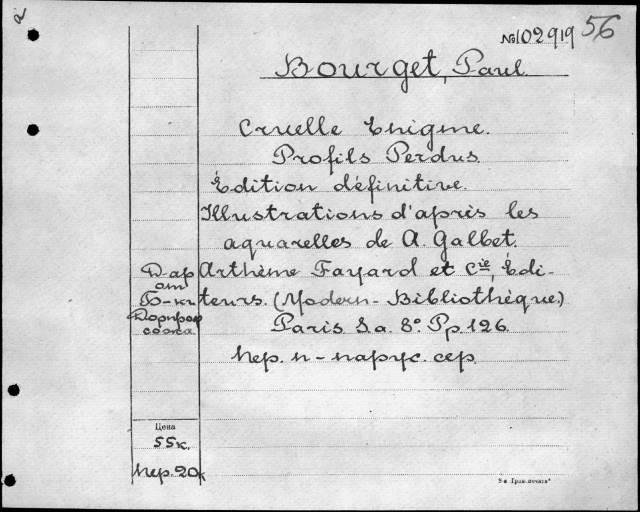 №102919 56
Bourget, Paul.
Cruelle Enigme.
Profils Perdus.
Édition définitive.
Illustrations d'après les
aquarelles de A. Galbet.
Arthème Fayard et Cie, Édi-
teurs. (Modern-Bibliothèque)
Paris S.a. 8° Pp. 126.
Пер. п-парус. сер.
Дар
от
Б-ки
Цена
55к.
Пер. 20к